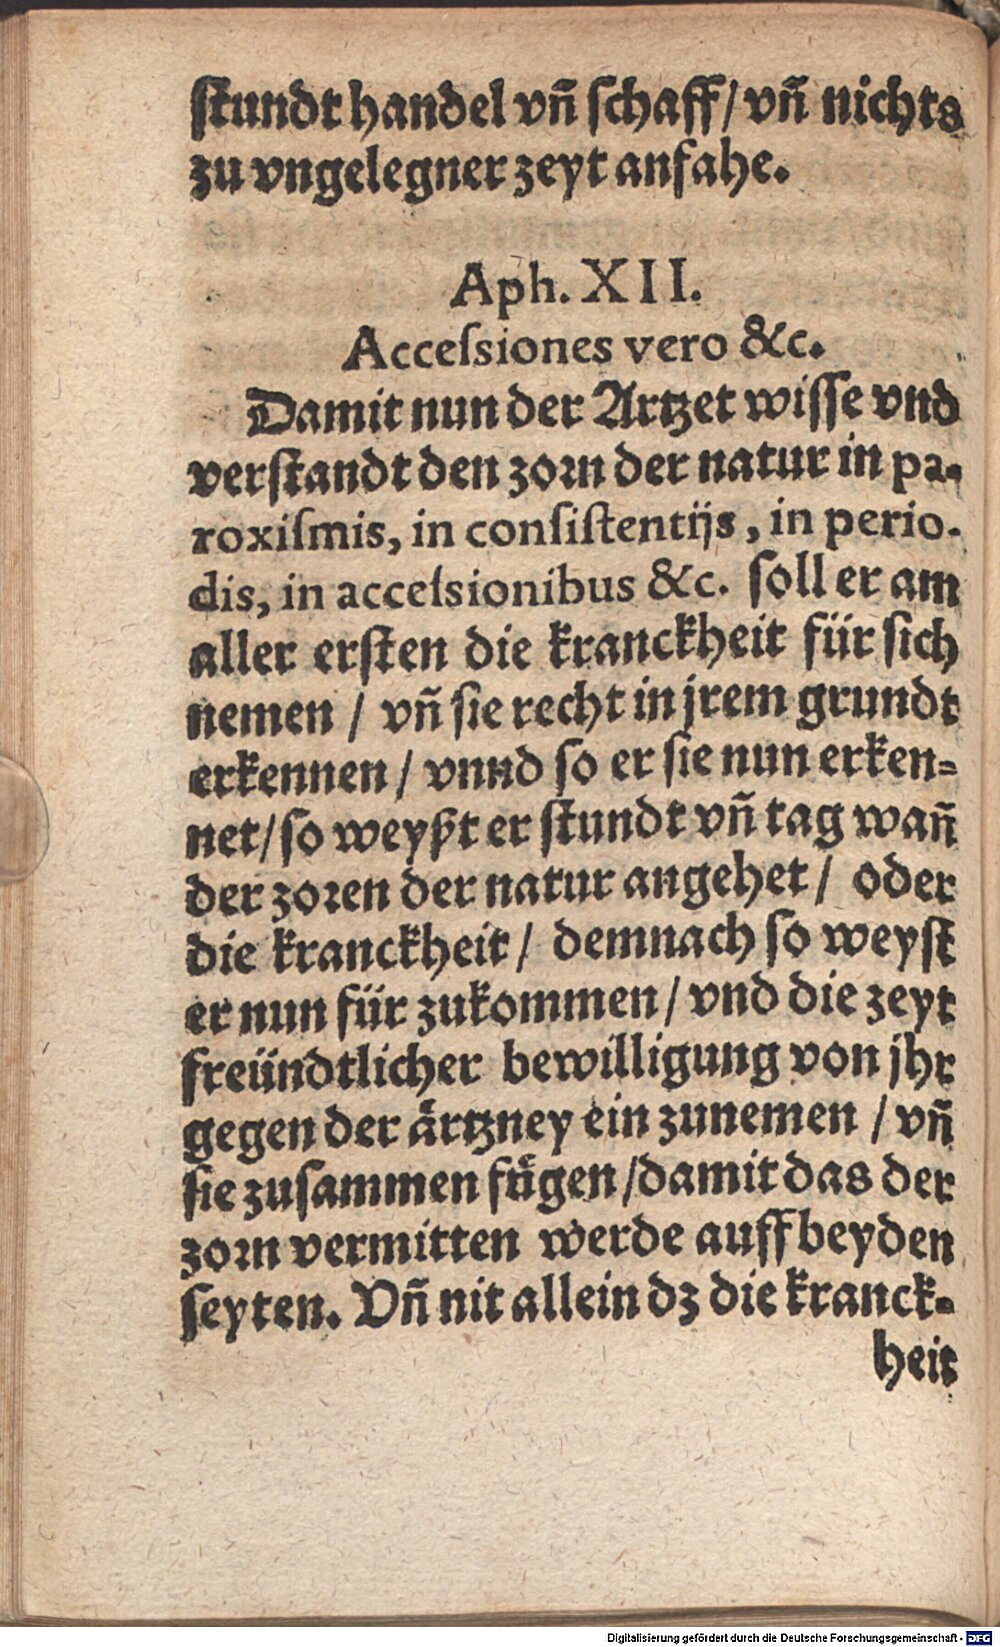 ſtundt handel vñ ſchaff/ vñ nichts
zu vngelegner zeyt anfahe.
Aph. XII.
Acceſsiones vero &c.
Damit nun der Artzet wiſſe vnd
verſtandt den zorn der natur in pa-
roxiſmis, in conſiſtentijs, in perio-
dis, in acceſsionibus &c. ſoll er am
aller erſten die kranckheit für ſich
nemen / vñ ſie recht in jrem grundt
erkennen / vnnd ſo er ſie nun erken-
net/ ſo weyßt er ſtundt vñ tag wañ
der zoren der natur angehet / oder
die kranckheit / demnach ſo weyſt
er nun für zukommen / vnd die zeyt
freündtlicher bewilligung von jhr
gegen der aͤrtzney ein zunemen / vñ
ſie zuſammen fuͤgen /damit das der
zorn vermitten werde auff beyden
ſeyten. Vñ nit allein dz die kranck-
heit
Digitalisierung gefördert durch die Deutsche Forschungsgemeinschaft - DFG